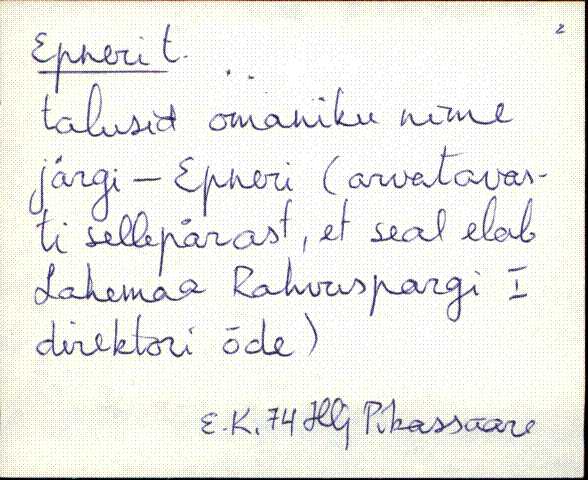 2
Epneri t.
talusid omaniku nime
järgi – Epneri (arvatavas-
ti sellepärast, et seal elab
Lahemaa Rahvuspargi I
direktori õde)
E.K. 74 Hlj Pikassaare